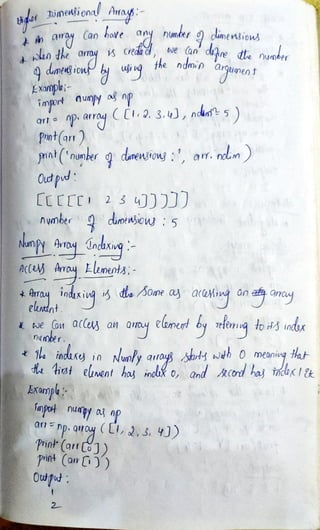 Higher Dimensional Arrays:-
* An array Can have any number of dimensions
* when the array is created, we can define the number
of dimensions by using the ndmin argument
Example:-
import numpy as np
arr = np.array ( [1, 2, 3, 4], ndmin = 5 )
print(arr)
print('number of dimensions :', arr.ndim)
Output:
[[[[[1 2 3 4]]]]]
number of dimensions : 5
Numpy Array Indexing :-
Access Array Elements:-
* Array indexing is the same as accessing an array
element.
* we Can access an array element by referring to its index
number.
* The indexes in NumPy arrays starts with 0 meaning that
the first element has index 0, and second has index 1 etc
Example:-
import numpy as np
arr = np.array ([1, 2, 3, 4])
print (arr[0])
print (arr[1])
Output:
1
2